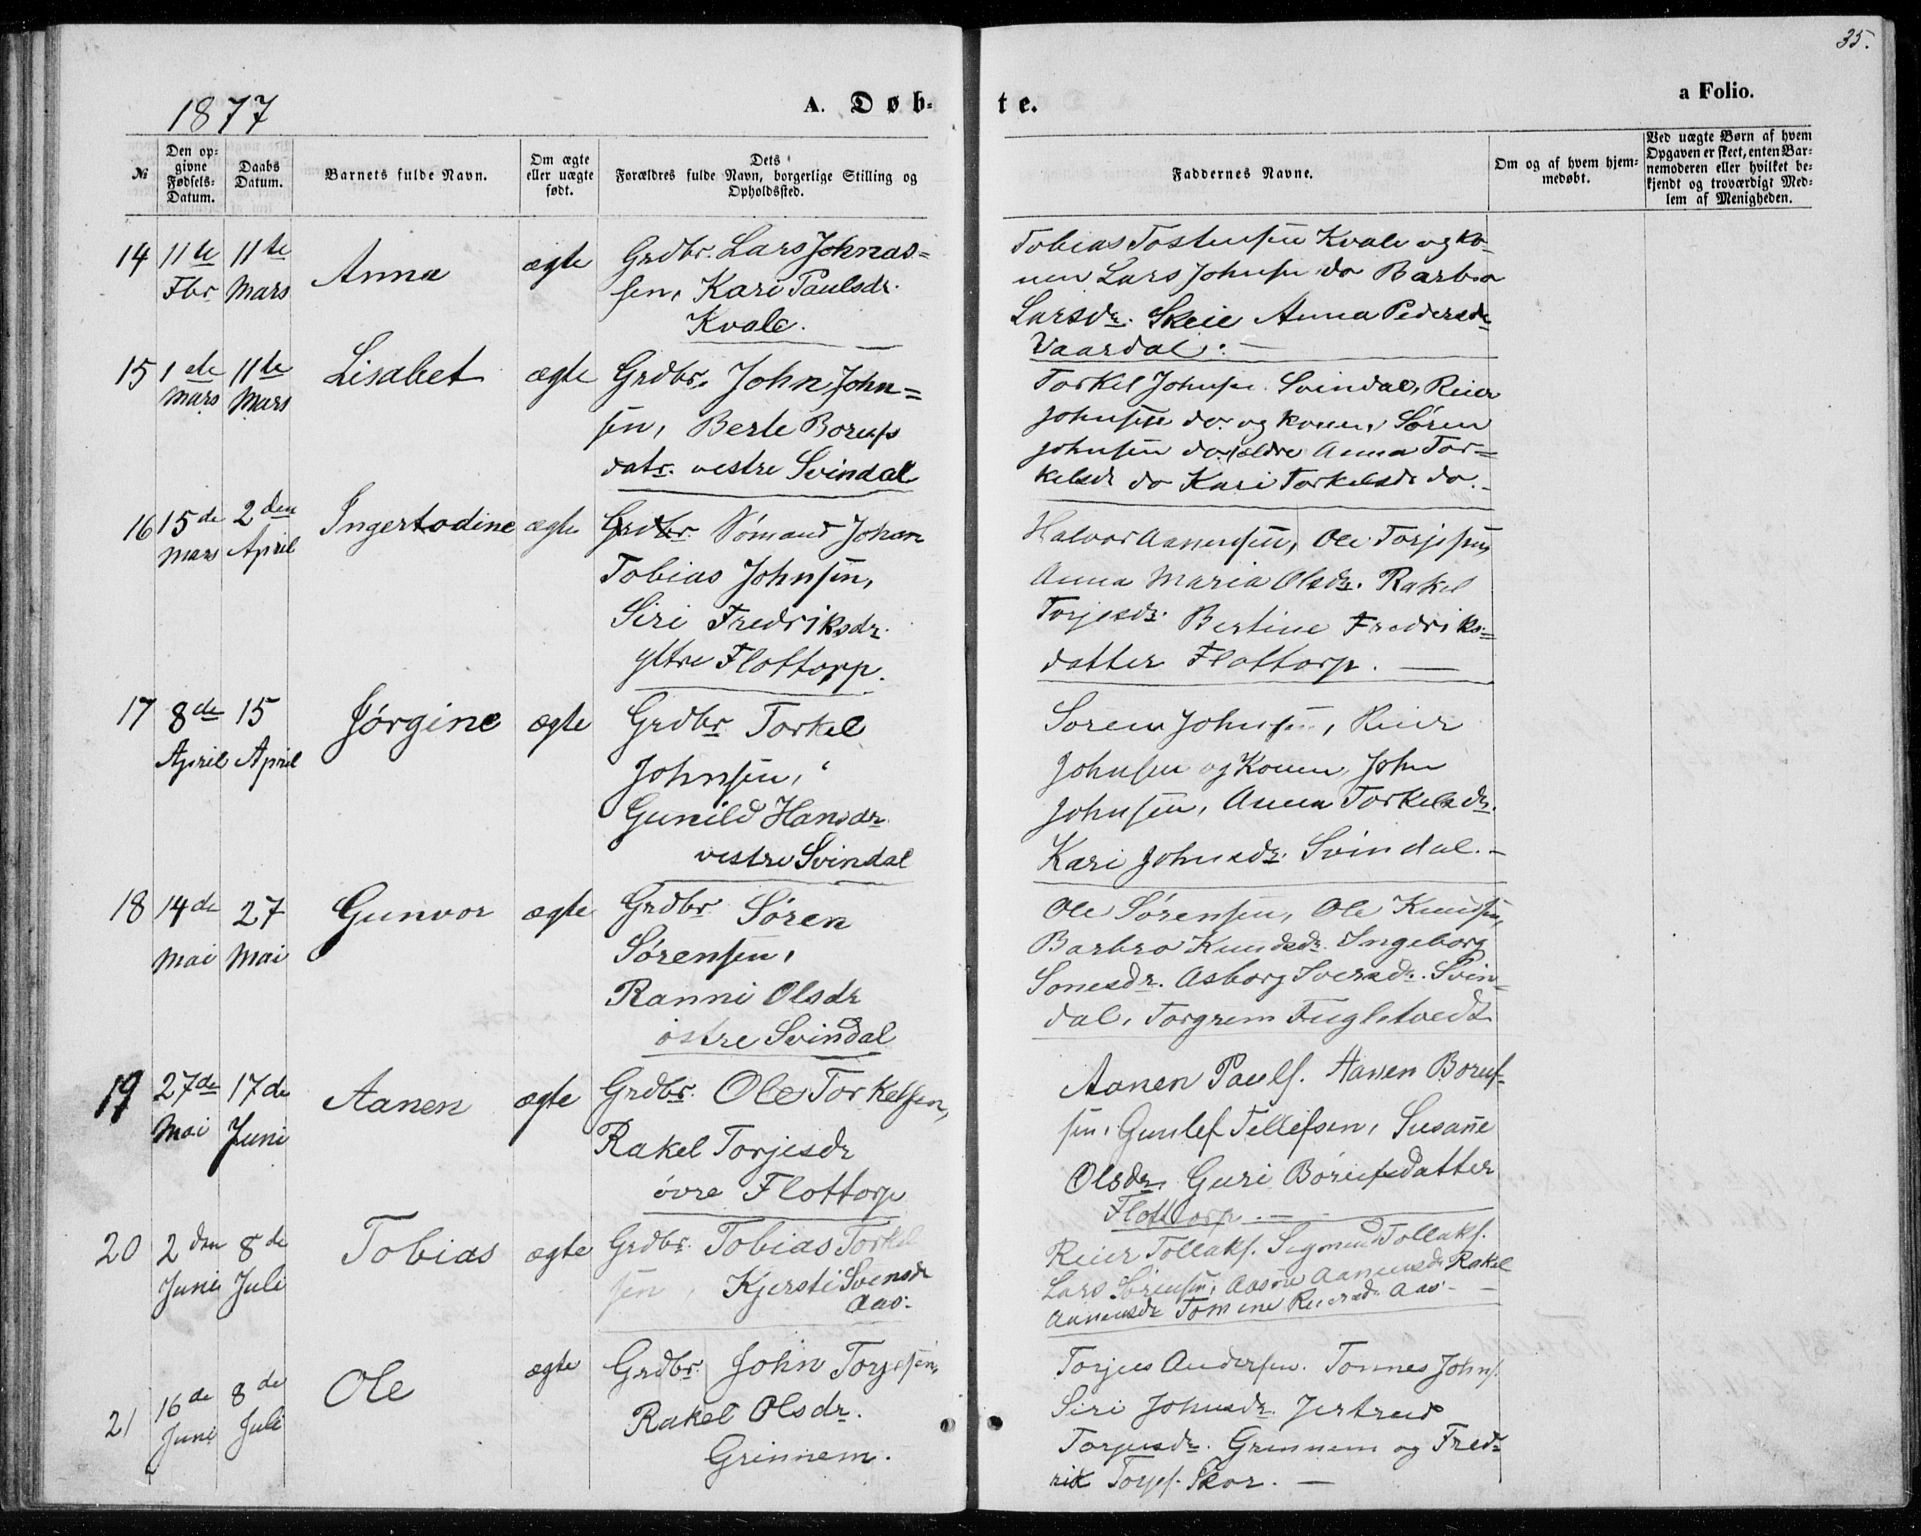 35.
1877
A. Døb-
te.
a Folio.
№
Den op-
givne
Fødsels-
Datum.
Daabs
Datum.
Barnets fulde Navn.
Om ægte
eller uægte
født.
Dets
Forældres fulde Navn, borgerlige Stilling og
Opholdssted.
Faddernes Navne.
Om og af hvem hjem-
medøbt.
Ved uægte Børn af hvem
Opgaven er skeet, enten Bar-
nemoderen eller hvilket be-
kjendt og troværdigt Med-
lem af Menigheden.
14 11te Fbr 11te Mars Anna ægte
Grdbr. Lars Johnas=
sen, Kari Paulsdr.
Kvale.
Tobias Tostensen Kvale og Ko-
nen Lars Johnsen do Barbro
Larsdr. Skeie Anna Pedersdr
Vaardal.
15 1ste Mars 11te Mars Lisabet ægte
Grdbr. John John=
sen, Berte Borufs
datr. vestre Svindal
Torkel Johnsen Svindal, Reier
Johnsen do. og konen, Søren
Johnsen do. ældre Anna Tor=
kelsdr do Kari Torkelsdr do.
16 15de Mars 2den April Ingertodine ægte
Grdbr. Sømand Johan
Tobias Johnsen,
Siri Fredriksdr.
yttre Flottorp.
Halvor Aanensen, Ole Torjesen,
Anna Maria Olsdr. Rakel
Torjesdr. Bertine Fredriks=
datter Flottorp.
17 8de April 15 April Jørgine ægte
Grdbr Torkel
Johnsen,
Gunild Hansdr.
vestre Svindal
Soren Johnsen, Reier
Johnsen og Konen, John
Johnsen, Anna Torkelsdr.
Kari Johnsdr. Svindal.
18 14de Mai 27 Mai Gunvor ægte
Grdbr Søren
Sørensen,
Ranni Olsdr
østre Svindal
Ole Sørensen, Ole Knudsen,
Barbro Knudsdr. Ingeborg
Sonesdr. Asborg Sversdr. Svin-
dal, Torgrem Fuglstvedt
19 27de Mai 17de Juni Aanen ægte
Grdbr. Ole Torkelsen,
Rakel Torjesdr
øvre Flottorp
Aanen Pauls. Aanen Boruf-
sen, Gunlef Tellefsen, Susane
Olsdr. Guri Børufsdatter
Flottorp.
20 2den Juni 8de Juli Tobias ægte
Grdbr. Tobias Torkel
sen, Kjersti Svensdr
Aas.
Reier Tollaks. Sigmund Tollaks.
Lars Sørensen, Aasne Aanensdr Rakel
Aanensdr Tomine Reiersdr. Aas.
21 16de Juni 8de Juli Ole ægte
Grdbr. John Torjesen,
Rakel Olsdr.
Grinnem.
Torjus Andersen. Tonnes Johns.
Siri Johnsdr. Jertrud
Torjusdr. Grinnem og Fred-
rik Torjes. Skor.